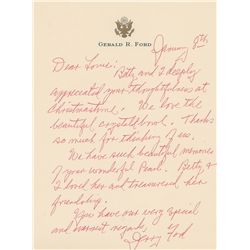 GERALD R. FORD
January 9th,
Dear Louie:
Betty and I deeply
appreciated your thoughtfulness at
Christmastime. We love the
beautiful crystal bowl. Thanks
so much for thinking of us.
We have such beautiful memories
of your wonderful Pearl. Betty &
I loved her and treasured her
friendship.
You have our very special
and warmest regards,
Jerry Ford